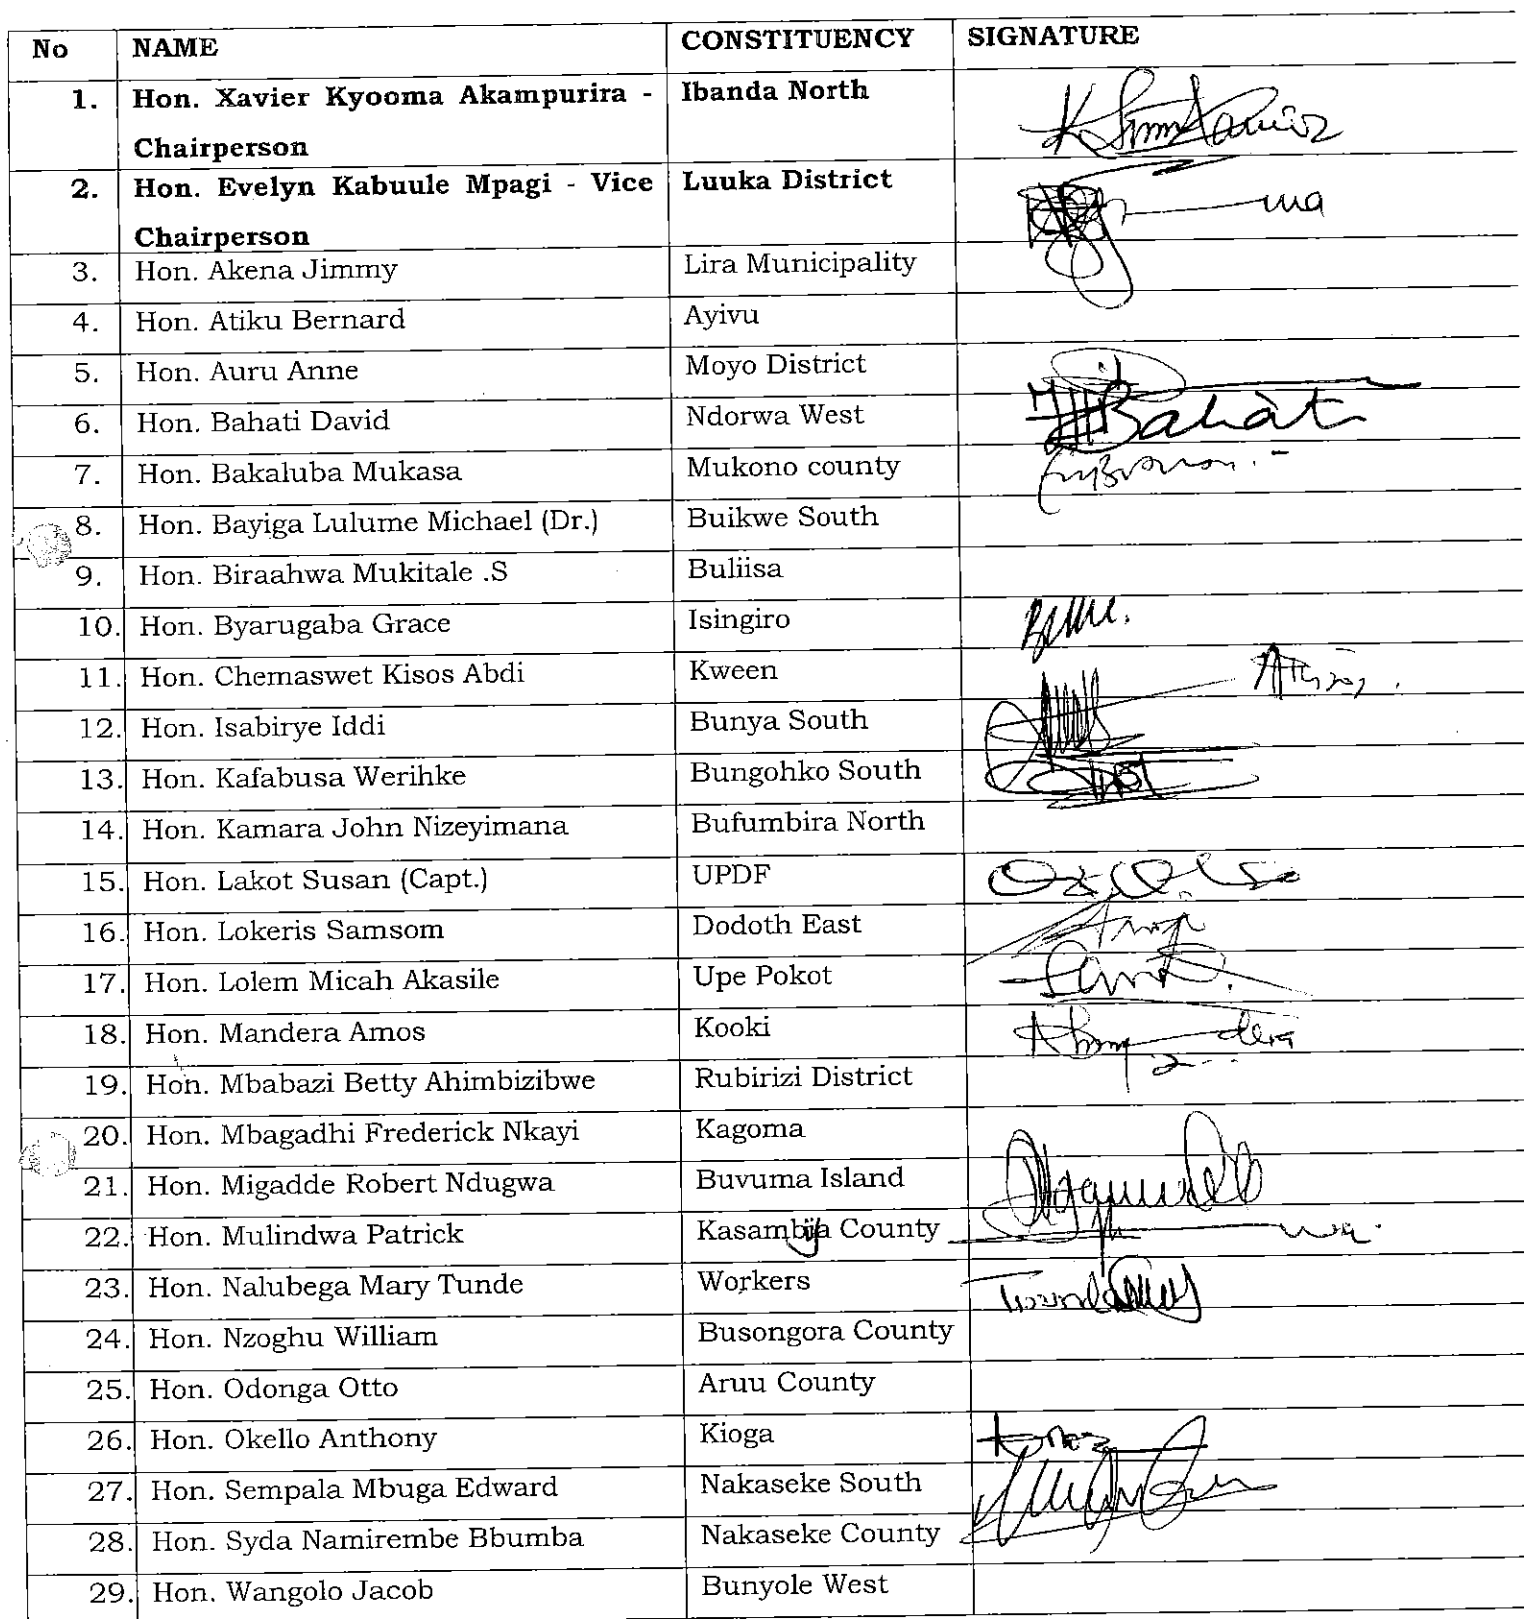 No NAME CONSTITUENCY SIGNATURE
1. Hon. Xavier Kyooma Akampurira - Ibanda North
Chairperson
2. Hon. Evelyn Kabuule Mpagi - Vice Luuka District
Chairperson
3. Hon. Akena Jimmy Lira Municipality
4. Hon. Atiku Bernard Ayivu
5. Hon. Auru Anne Moyo District
6. Hon. Bahati David Ndorwa West Bahati
7. Hon. Bakaluba Mukasa Mukono county
8. Hon. Bayiga Lulume Michael (Dr.) Buikwe South
9. Hon. Biraahwa Mukitale .S Buliisa
10. Hon. Byarugaba Grace Isingiro
11. Hon. Chemaswet Kisos Abdi Kween
12. Hon. Isabirye Iddi Bunya South
13. Hon. Kafabusa Werihke Bungohko South
14. Hon. Kamara John Nizeyimana Bufumbira North
15. Hon. Lakot Susan (Capt.) UPDF
16. Hon. Lokeris Samsom Dodoth East
17. Hon. Lolem Micah Akasile Upe Pokot
18. Hon. Mandera Amos Kooki
19. Hon. Mbabazi Betty Ahimbizibwe Rubirizi District
20. Hon. Mbagadhi Frederick Nkayi Kagoma
21. Hon. Migadde Robert Ndugwa Buvuma Island
22. Hon. Mulindwa Patrick Kasambija County
23. Hon. Nalubega Mary Tunde Workers
24. Hon. Nzoghu William Busongora County
25. Hon. Odonga Otto Aruu County
26. Hon. Okello Anthony Kioga
27. Hon. Sempala Mbuga Edward Nakaseke South
28. Hon. Syda Namirembe Bbumba Nakaseke County
29. Hon. Wangolo Jacob Bunyole West